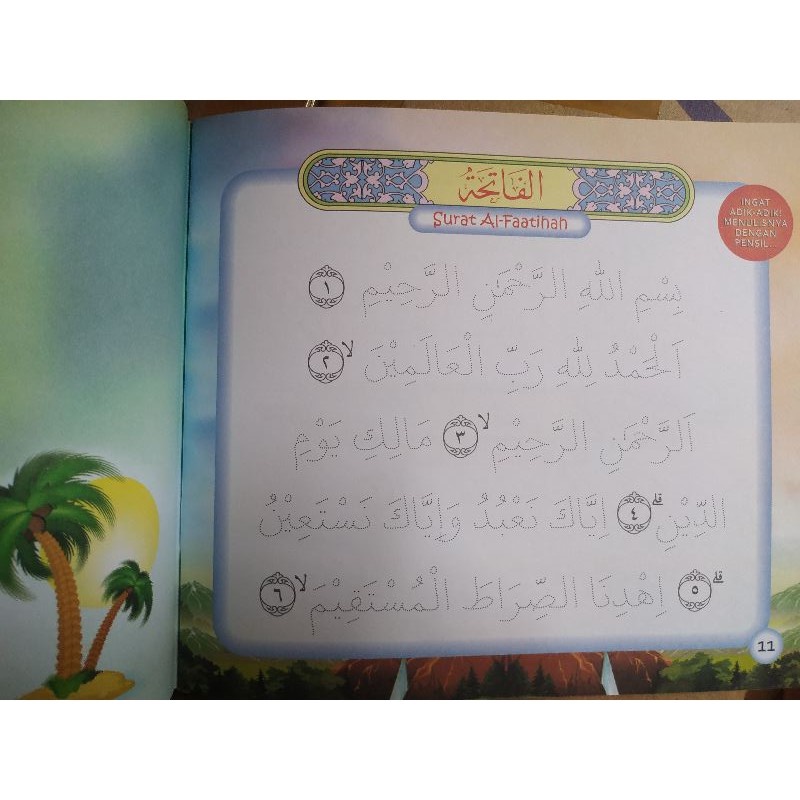 الفَاتِحَةُ
Surat Al-Faatihah
INGAT
ADIK-ADIK!
MENULISNYA
DENGAN
PENSIL...
بِسْمِ اللهِ الرَّحْمَنِ الرَّحِيْمِ ١
اَلْحَمْدُ لِلهِ رَبِّ الْعَالَمِيْنَ ۙ ٢
اَلرَّحْمَنِ الرَّحِيْمِ ۙ ٣ مَالِكِ يَوْمِ
الدِّيْنِ ۗ ٤ اِيَّاكَ نَعْبُدُ وَاِيَّاكَ نَسْتَعِيْنُ
ۗ ٥ اِهْدِنَا الصِّرَاطَ الْمُسْتَقِيْمَ ۙ ٦
11